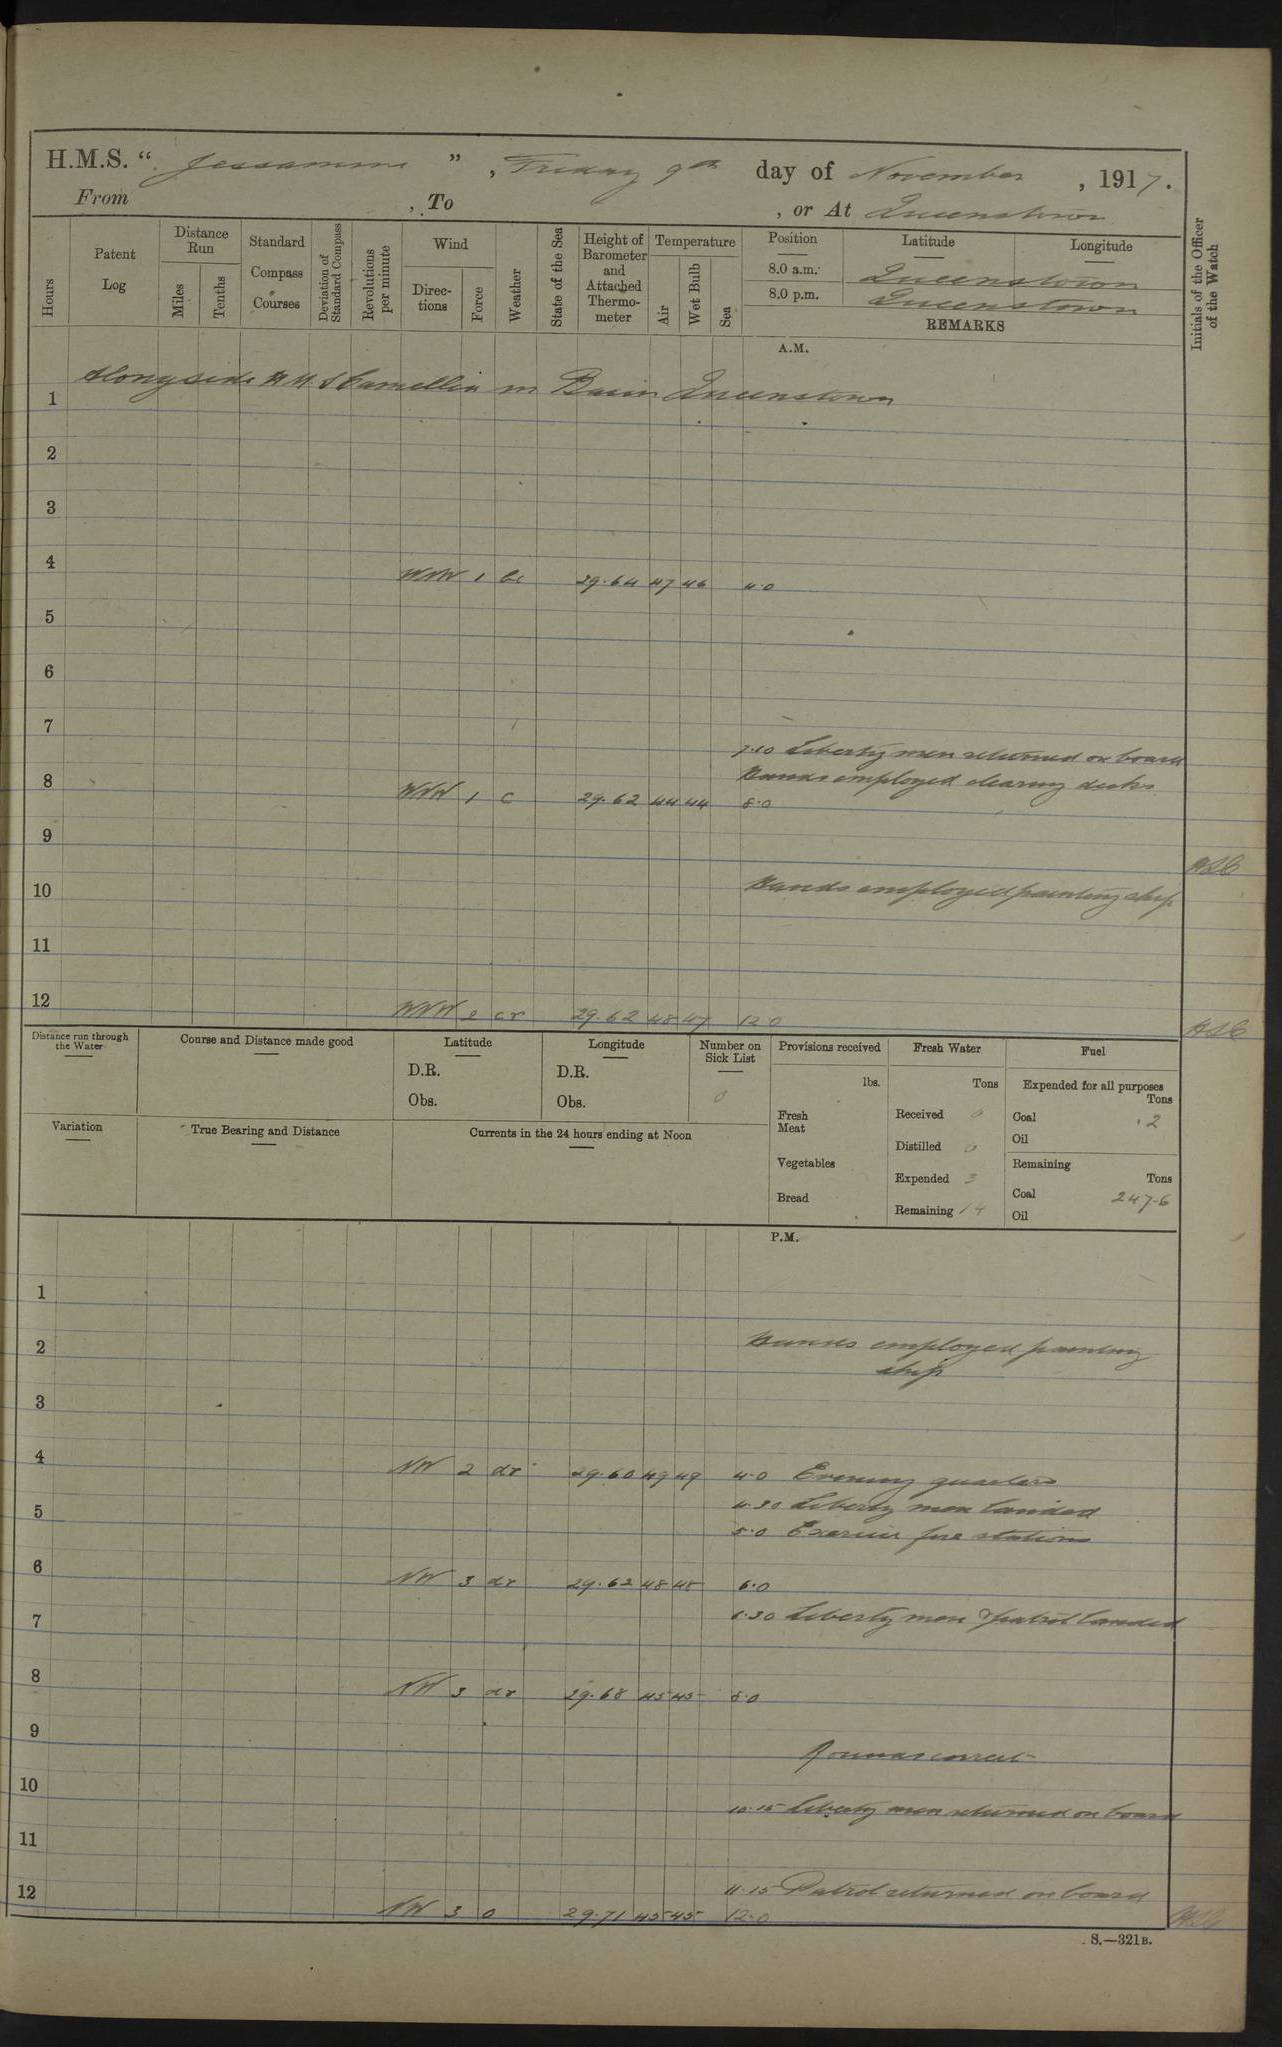 H.M.S. "Jessamine", Friday 9th day of November, 1917.
From , To , or At Queenstown
Hours
Patent Log
Distance Run
Miles
Tenths
Standard Compass Courses
Deviation of Standard Compass
Revolutions per minute
Wind
Directions
Force
Weather
State of the Sea
Height of Barometer and Attached Thermometer
Temperature
Air
Wet Bulb
Sea
Position
Latitude
Longitude
8.0 a.m. Queenstown
8.0 p.m. Queenstown
REMARKS
Initials of the Officer of the Watch
A.M.
Alongside H.M.S Camellia in Basin Queenstown
1
2
3
4
WNW 1 bc 29.64 47 46 4.0
5
6
7
7.10 Liberty men returned on board
8
Hands employed clearing decks
WNW 1 c 29.62 44 44 8.0
9
10
Hands employed painting ship
11
12
WNW 2 cr 29.62 48 47 12.0
Distance run through the Water
Course and Distance made good
Latitude
D.R.
Obs.
Longitude
D.R.
Obs.
Number on Sick List
0
Provisions received
lbs.
Fresh Meat
Vegetables
Bread
Fresh Water
Tons
Received 0
Distilled 0
Expended 3
Remaining 14
Fuel
Expended for all purposes
Tons
Coal .2
Oil
Remaining
Tons
Coal 247.6
Oil
Variation
True Bearing and Distance
Currents in the 24 hours ending at Noon
P.M.
1
2
Hands employed painting
ship
3
4
NW 2 dr 29.60 49 49 4.0 Evening quarters
4.30 Liberty men landed
5
5.0 Exercise fire stations
6
NW 3 dr 29.62 48 48 6.0
6.30 Liberty men & patrol landed
7
8
NW 3 dr 29.68 45 45 8.0
9
Rounds correct
10
10.15 Liberty men returned on board
11
12
11.15 Patrol returned on board
NW 3 0 29.71 45 45 12.0
S.—321B.